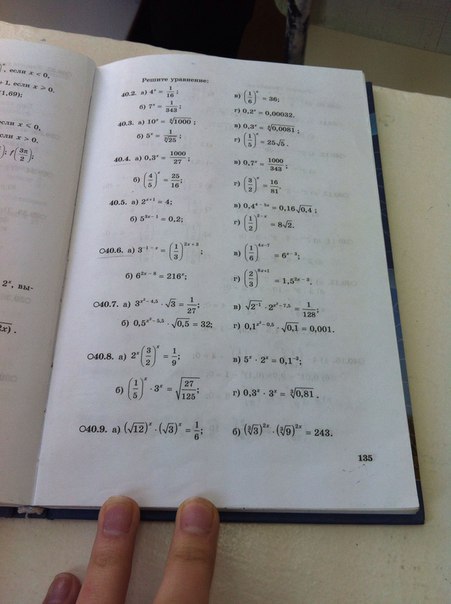 , если x < 0,
+ 1, если x > 0.
если x < 0,
если x > 0.
Решите уравнение:
40.2. а) 4^x = 1/16; в) (1/6)^x = 36;
б) 7^x = 1/343; г) 0,2^x = 0,00032.
40.3. а) 10^x = 1000; в) 0,3^x = 0,0081;
б) 5^x = г) (1/5)^x = 25√5.
40.4. а) 0,3^x = 1000/27; в) 0,7^x = 1000/343;
б) (4/5)^x = 25/16; г) (3/2)^x = 16/81.
40.5. а) 2^(x + 1) = 4; в) 0,4^(4 – 5x) = 0,16√0,4;
б) 5^(3x – 1) = 0,2; г) (1/2)^(2 – x) = 8√2.
○40.6. а) 3^(–1 – x) = (1/3)^(2x + 3); в) (1/6)^(4x – 7) = 6^(x – 3);
б) 6^(2x – 8) = 216^x; г) (2/3)^(8x + 1) = 1,5^(2x – 3).
○40.7. а) 3^(x² – 4,5) · √3 = 1/27; в) √(2^(–1)) · 2^(x² – 7,5) = 1/128;
б) 0,5^(x² – 5,5) · √0,5 = 32; г) 0,1^(x² – 0,5) · √0,1 = 0,001.
2^x, вы-
○40.8. а) 2^x (3/2)^x = 1/9; в) 5^x · 2^x = 0,1^(–3);
б) (1/5)^x · 3^x = √(27/125); г) 0,3^x · 3^x = ∛0,81.
○40.9. а) (√12)^x · (√3)^x = 1/6; б) (∛3)^(2x) · (∛9)^(2x) = 243.
135